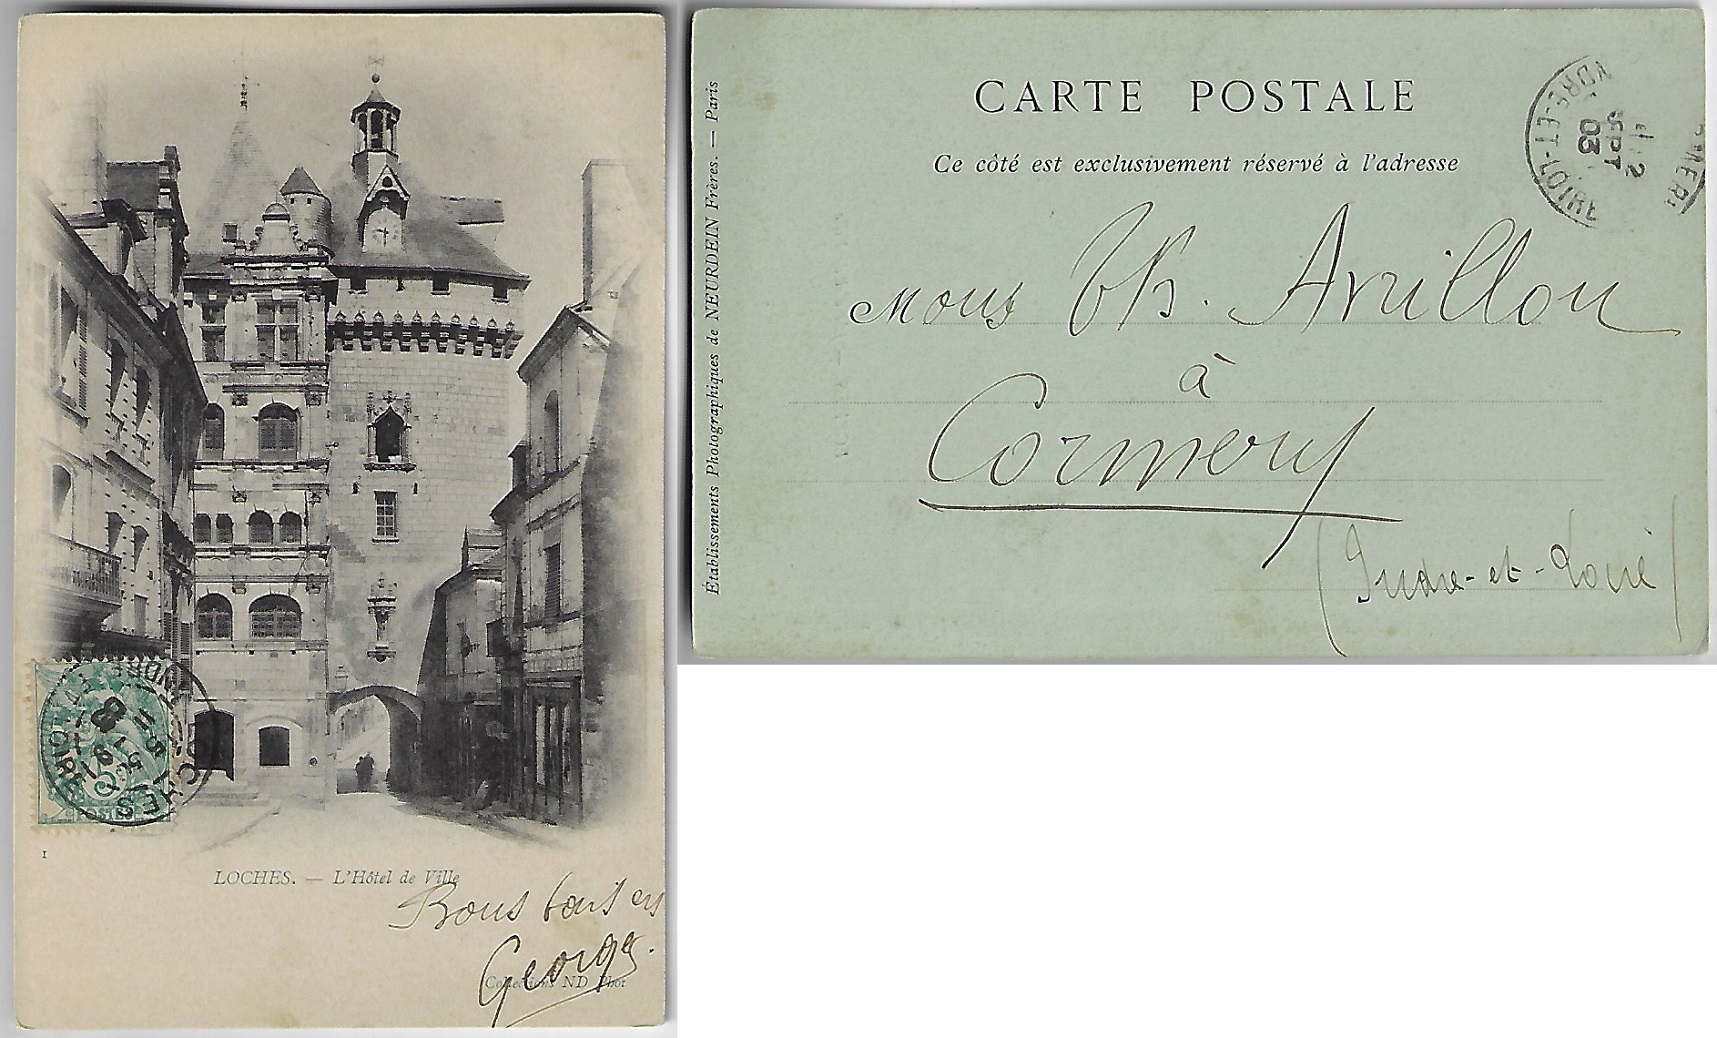 1
LOCHES. — L'Hôtel de Ville
Bons baisers
Georges.
Collections ND Phot
POSTES
LOCHES
INDRE-ET-LOIRE
CARTE POSTALE
Ce côté est exclusivement réservé à l'adresse
Établissements Photographiques de NEURDEIN Frères. — Paris
INDRE-ET-LOIRE
SEPT
03
Mons Th. Avrillon
à
Cormery
(Indre-et-Loire)